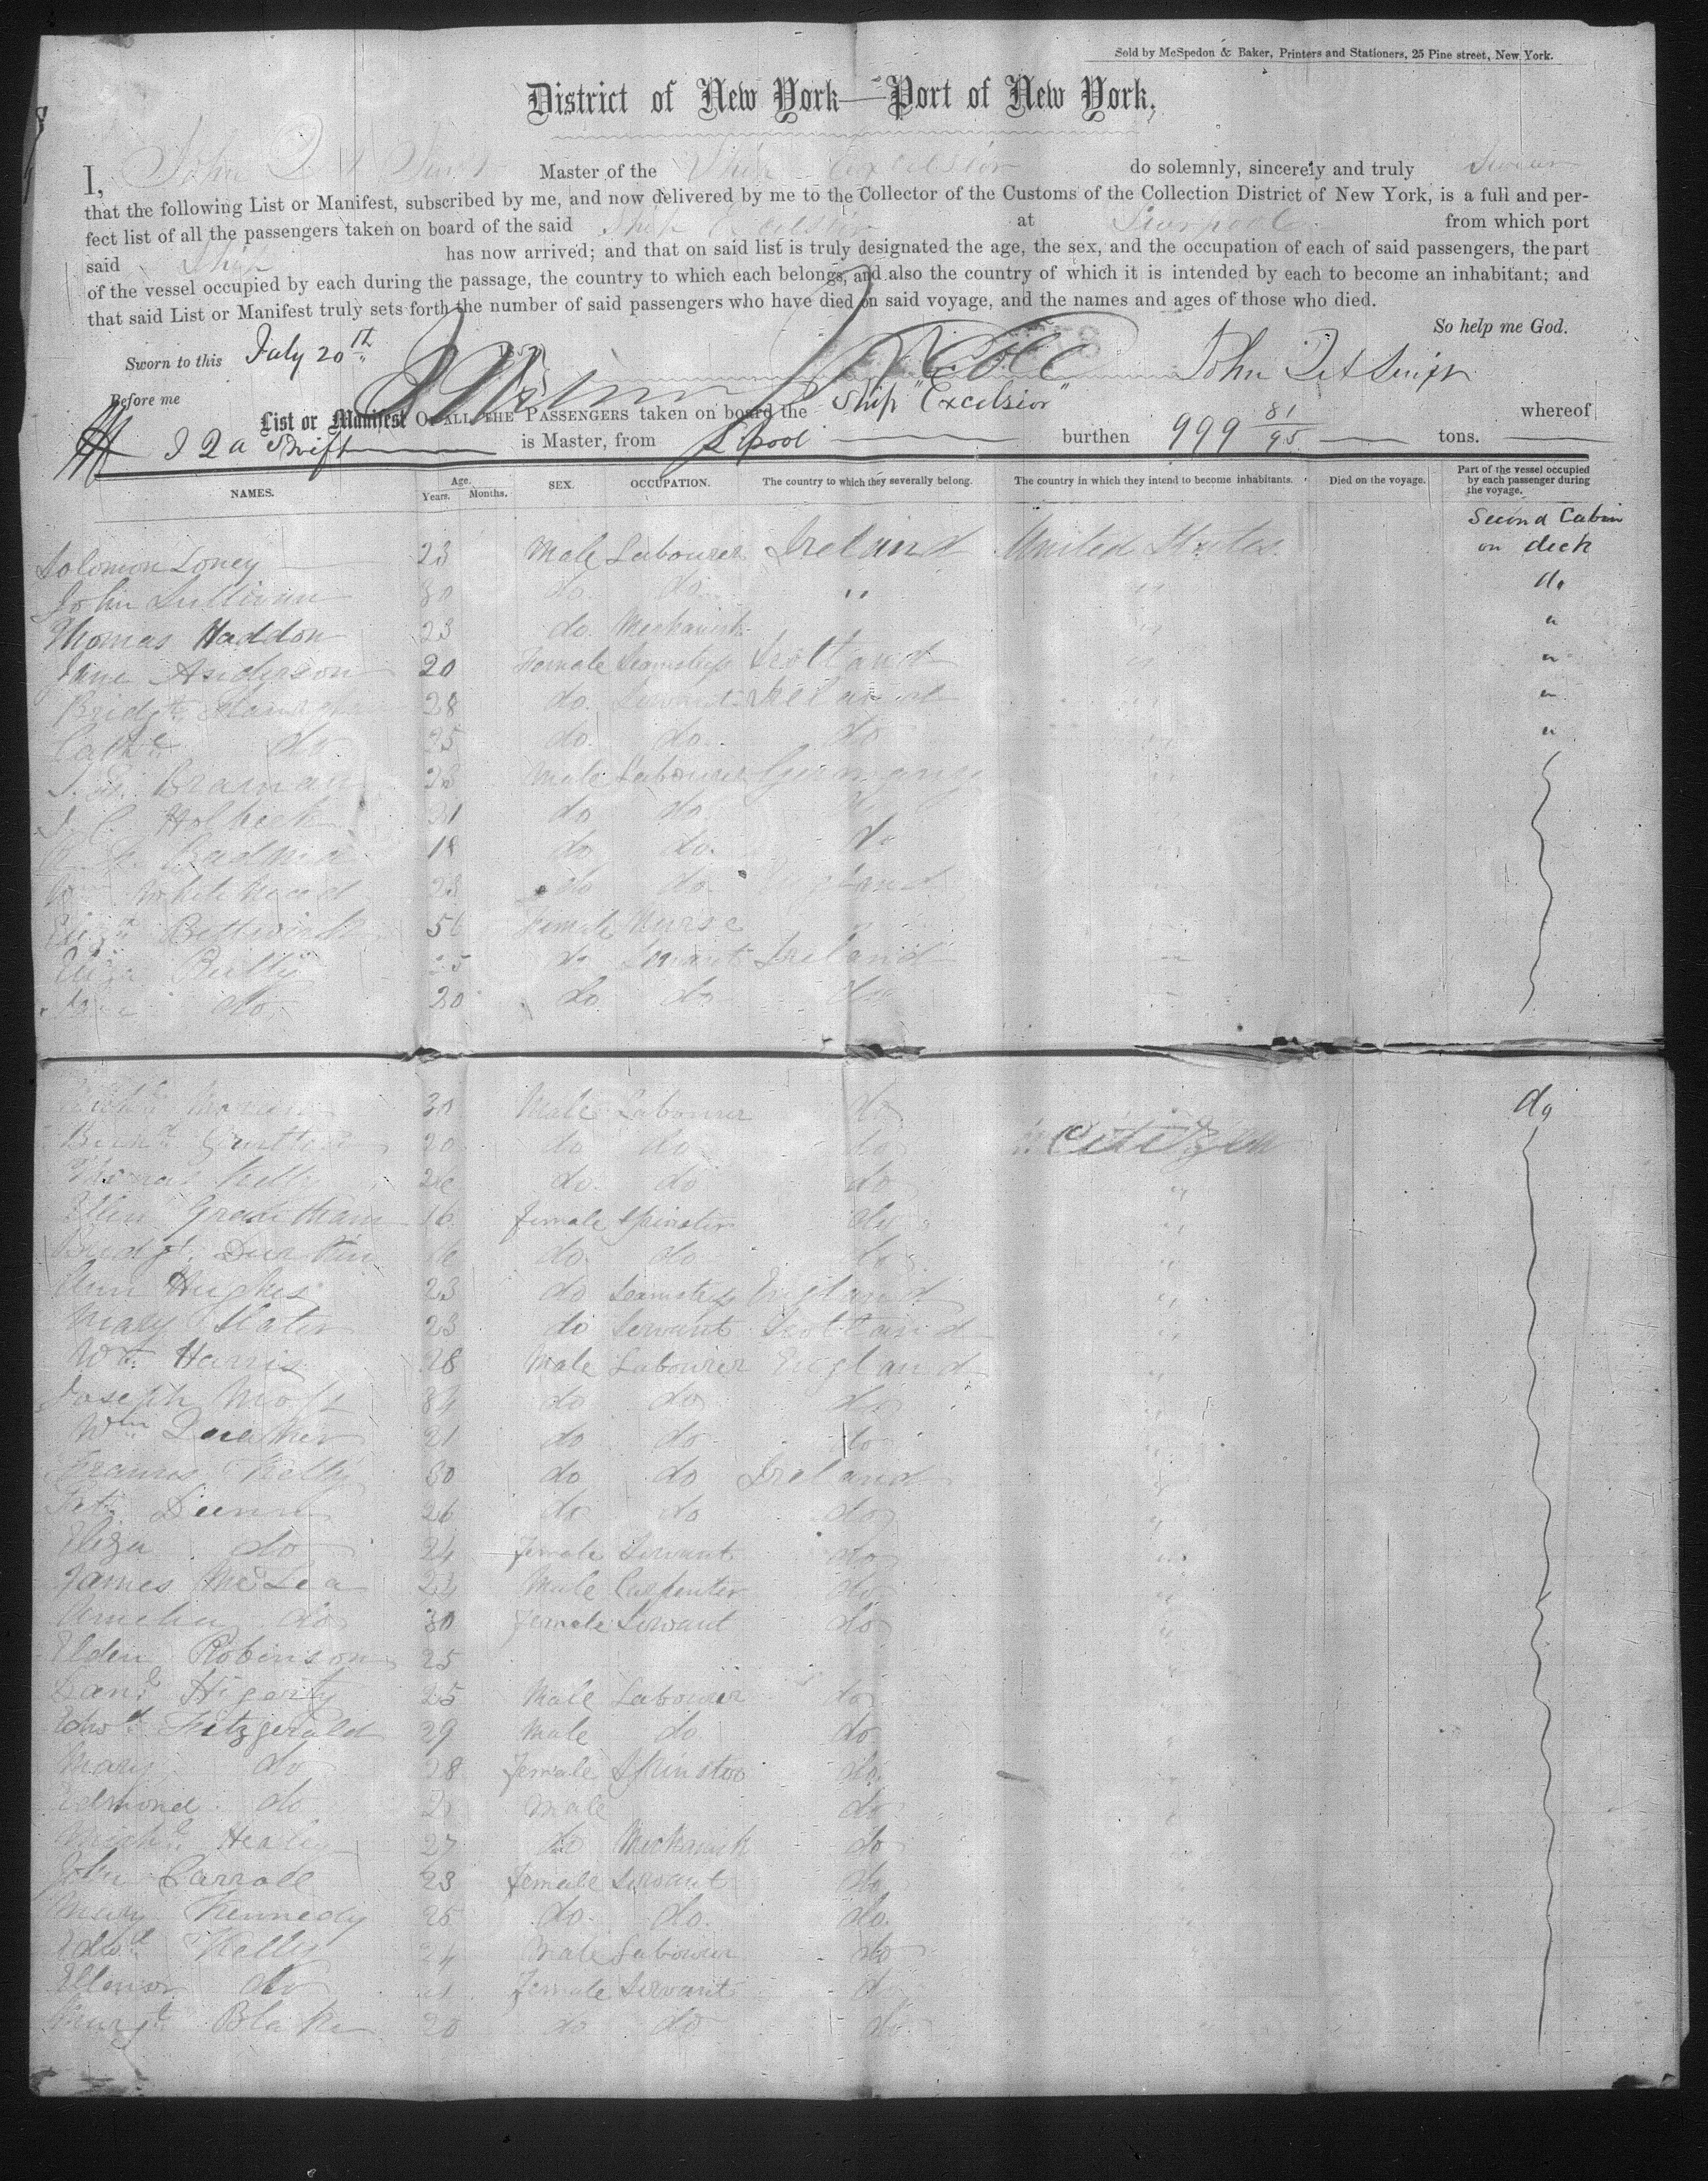 Sold by McSpedon & Baker, Printers and Stationers, 25 Pine street, New York.
District of New York—Port of New York,
I, John Master of the Ship Excelsior do solemnly, sincerely and truly Swear
that the following List or Manifest, subscribed by me, and now delivered by me to the Collector of the Customs of the Collection District of New York, is a full and per-
fect list of all the passengers taken on board of the said Ship Excelsior at Liverpool from which port
said Ship has now arrived; and that on said list is truly designated the age, the sex, and the occupation of each of said passengers, the part
of the vessel occupied by each during the passage, the country to which each belongs, and also the country of which it is intended by each to become an inhabitant; and
that said List or Manifest truly sets forth the number of said passengers who have died on said voyage, and the names and ages of those who died.
So help me God.
Sworn to this July 20th John
Before me
List or Manifest OF ALL THE PASSENGERS taken on board the Ship "Excelsior" whereof
Swift is Master, from Lpool burthen 999 81/95 tons.
NAMES. Age. Years. Months. SEX. OCCUPATION. The country to which they severally belong. The country in which they intend to become inhabitants. Died on the voyage. Part of the vessel occupied by each passenger during the voyage.
Second Cabin
Solomon Loney 23 Male Labourer Ireland United States on deck
John Sullivan 30 do. do. " " do
Thomas Haddon 23 do. Mechanick " "
Jane Anderson 20 Female Seamstress Scotland " "
28 do. Servant Ireland " "
Cathe do 25 do. do. do " "
Braman 23 Male Labourer Germany "
Holbeck 21 do do.
18 do do. do
Wm Whitehead 23 do do. England
56 Female Nurse "
Eliza Reilly 25 do Servant Ireland "
Jane do 20 do do do "
30 Male Labourer do do
20 do do do Citizen
Thomas Kelly 26 do. do do "
Ellen Grantham 16 female Spinster do "
Bridgt. Durkin 16 do. do do "
Ann Hughes 23 do Seamstress England "
Mary Slater 23 do Servant Scotland "
Wm. Harris 28 Male Labourer England "
Joseph Moss 34 do do do "
Wm 21 do do do "
Francis Kelly 30 do do Ireland "
Patk. Dunn 26 do do do "
Eliza do 24 female Servant do "
James McLea 22 Male Carpenter do "
Amelia do 30 female Servant do "
Elden Robinson 25
Danl. Higerty 25 Male Labourer do
Edwd. Fitzgerald 29 Male do do
Mary do 28 female Spinster do.
Edmond do Male do
Michl. Healey 27 do Mechanick do
John Carroll 23 female Servant do
Mary Kennedy 25 do. do. do.
Edwd. Kelly 24 Male Labourer do
Ellenor do female Servant do
Margt. Blake 20 do do do.